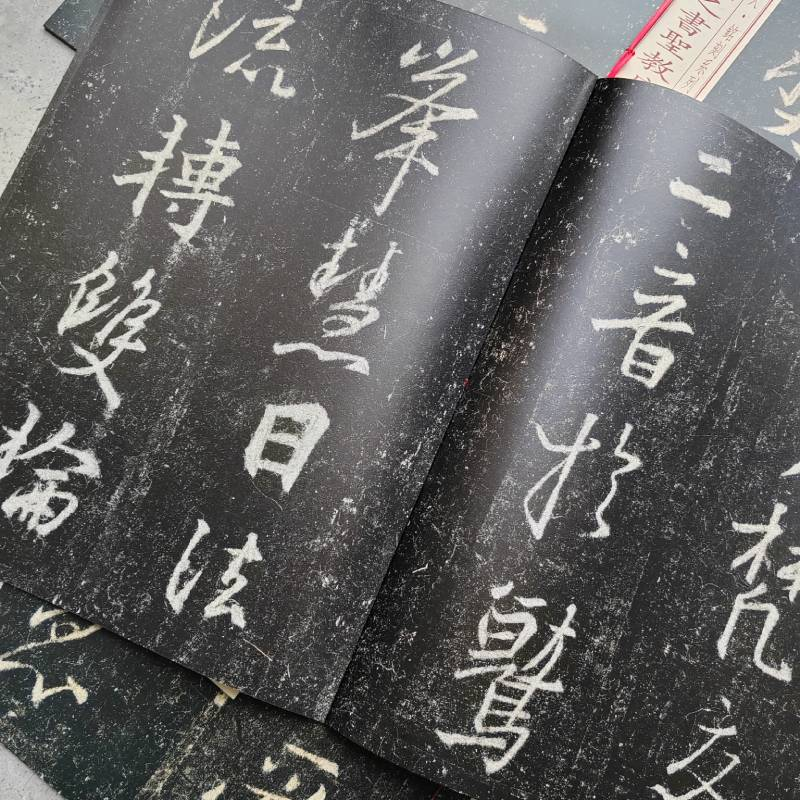 梵交
二音於鷲
峯慧日法
流轉雙輪
之書聖教